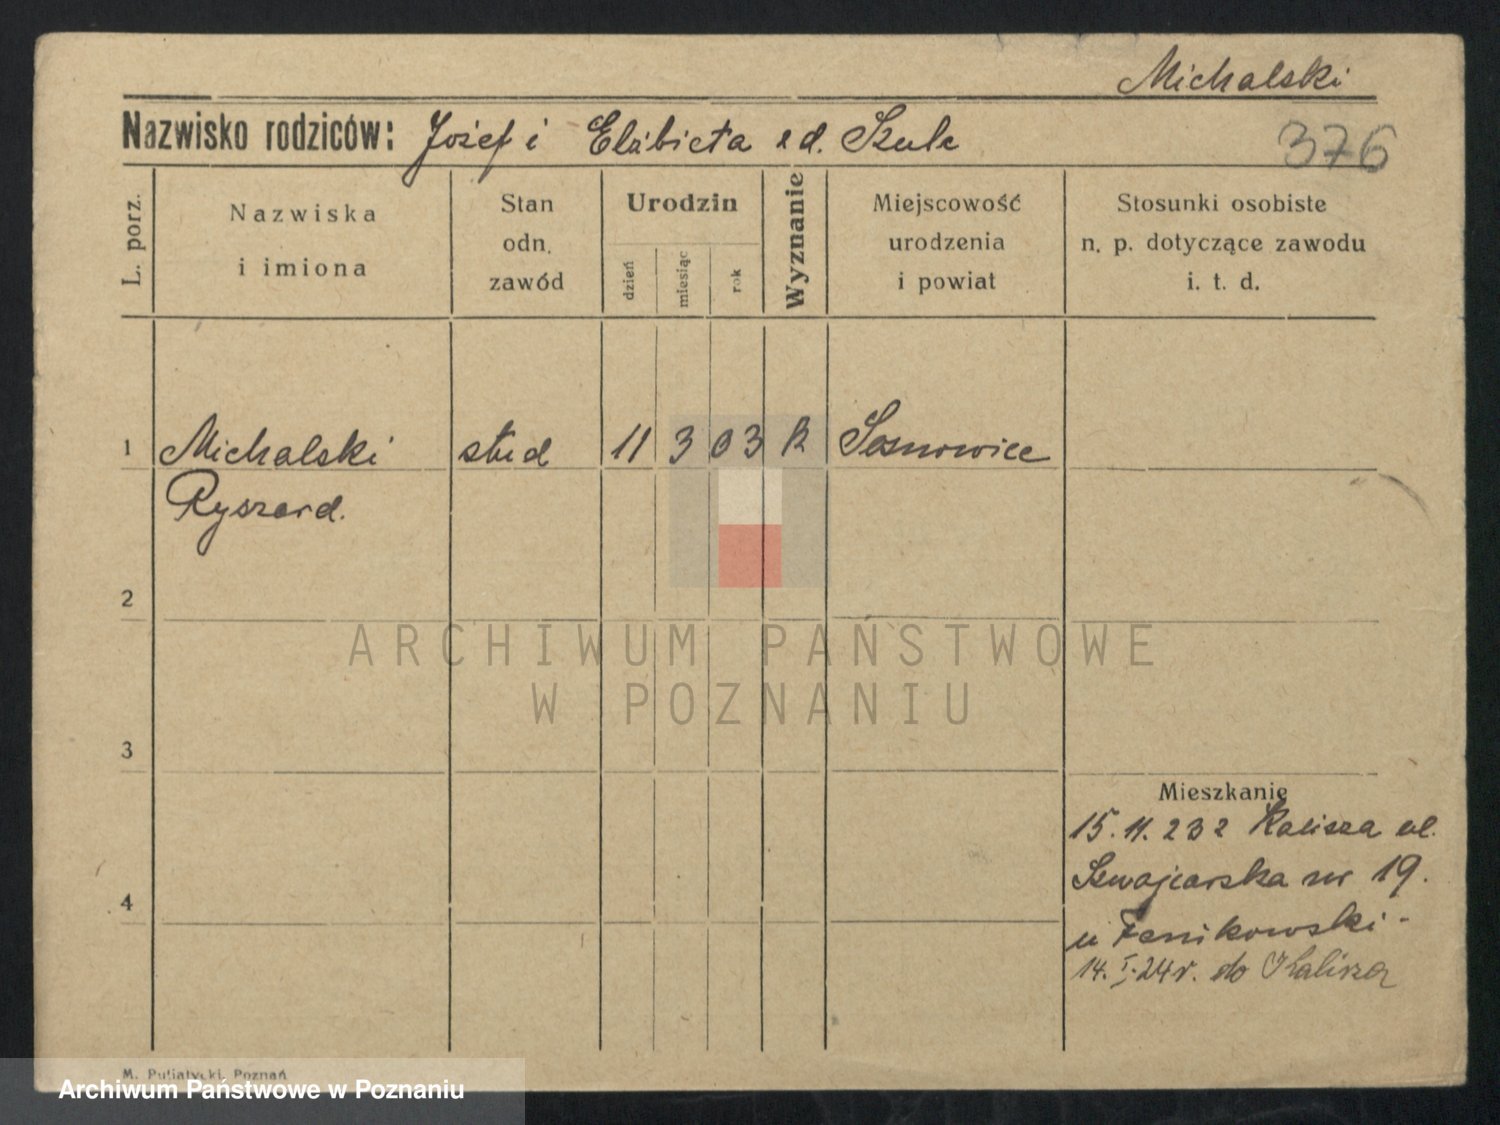 Michalski
Nazwisko rodziców: Józef i Elżbieta z d. Szulc
376
L. porz.
Nazwiska
i imiona
Stan
odn.
zawód
Urodzin
dzień
miesiąc
rok
Wyznanie
Miejscowość
urodzenia
i powiat
Stosunki osobiste
n. p. dotyczące zawodu
i. t. d.
1 Michalski stud 11 3 03 R Sosnowice
Ryszard.
2
3
4
Mieszkanie
15. 11. 23 z Kalisza ul.
Szwajcarska nr 19.
u
14. I. 24 r. do Kalisza
M. Putiatycki, Poznań
ARCHIWUM PAŃSTWOWE
W POZNANIU
Archiwum Państwowe w Poznaniu